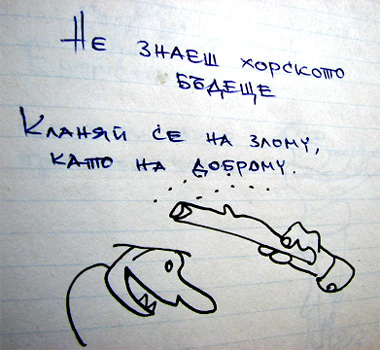 Не знаеш хорското
бъдеще
Кланяй се на злому,
като на доброму.